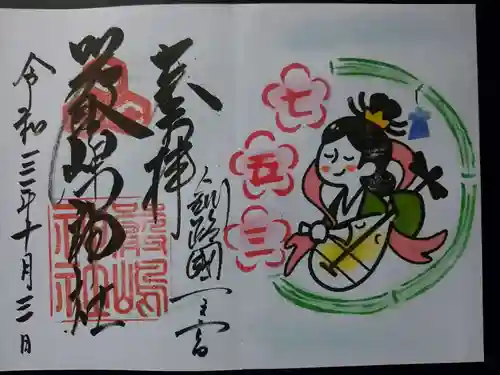 奉拝
釧路國一之宮
厳島神社
令和三年十月三日
厳嶋
神社
七
五
三